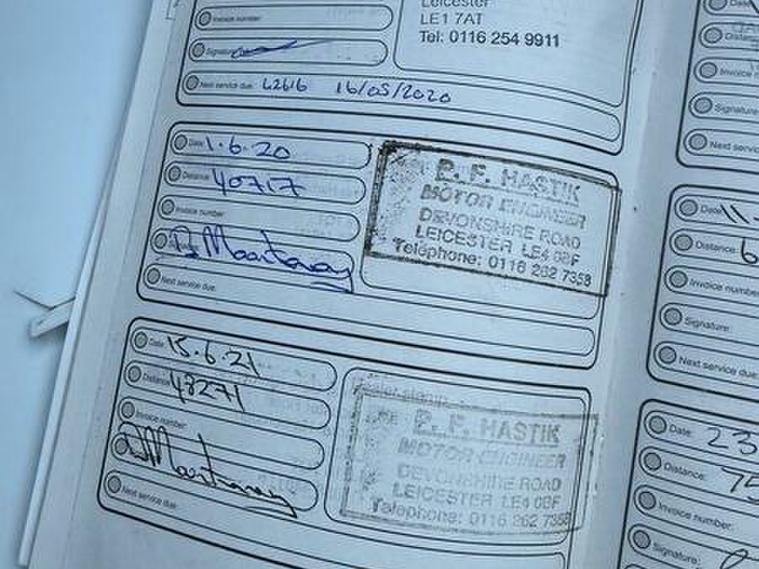 Leicester
Invoice number:
LE1 7AT
Signature:
Tel: 0116 254 9911
Next service due: 42616 16/05/2020
Date: 1.6.20
Distance: 40717
Invoice number:
Next service due:
P. F. HASTIK
MOTOR ENGINEER
DEVONSHIRE ROAD
LEICESTER LE4 0BF
Telephone: 0116 262 7358
Date: 15.6.21
Distance: 48271
Invoice number:
Next service due:
Dealer stamp:
P. F. HASTIK
MOTOR ENGINEER
DEVONSHIRE ROAD
LEICESTER LE4 0BF
Telephone: 0116 262 7358
Date
Distance
Invoice n
Signature:
Next service
Date: 11-
Distance: 6
Invoice number
Signature:
Next service
Date: 23
Distance: 75
Invoice number:
Signature: